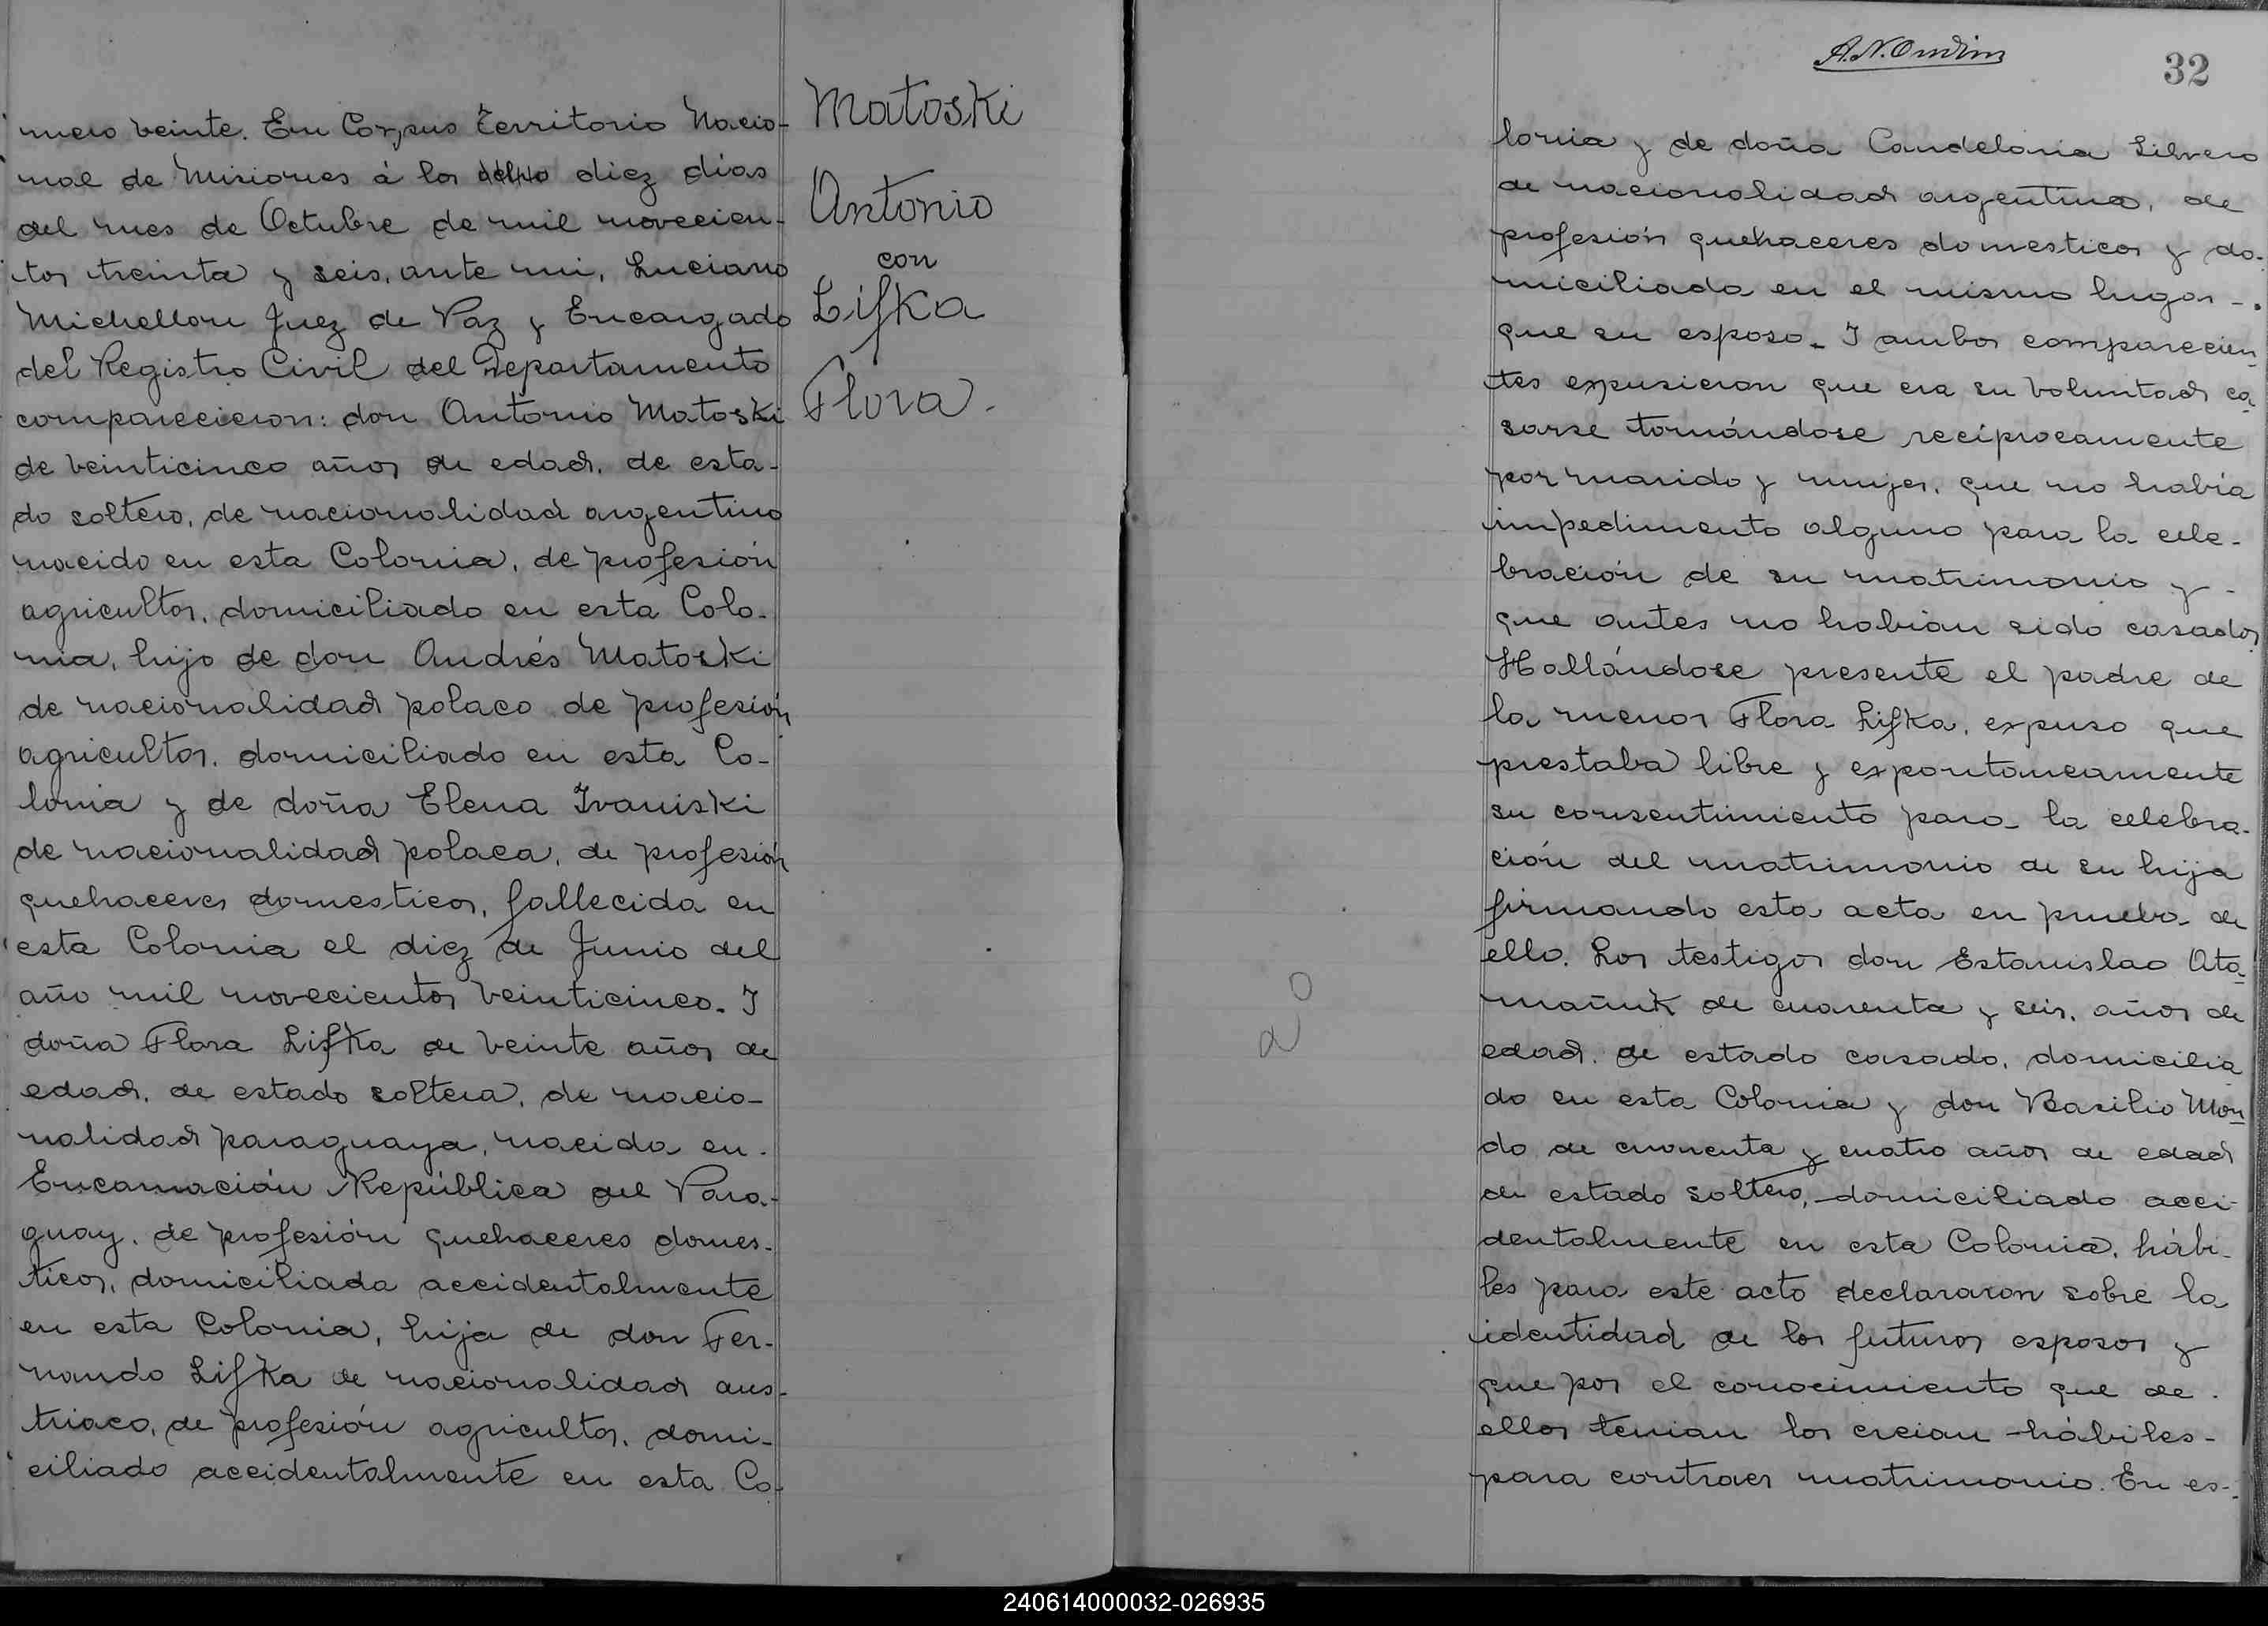 mero veinte. En Corpus Territorio Nacio-
nal de Misiones á los diez dias
del mes de Octubre de mil novecien-
tos treinta y seis, ante mi, Luciano
Michellon Juez de Paz y Encargado
del Registro Civil del Departamento
comparecieron: don Antonio Matoski
de veinticinco años de edad, de esta-
do soltero, de nacionalidad argentino
nacido en esta Colonia, de profesión
agricultor, domiciliado en esta Colo-
nia, hijo de don Andrés Matoski
de nacionalidad polaco de profesión
agricultor, domiciliado en esta Co-
lonia y de doña Elena Ivaniski
de nacionalidad polaca, de profesión
quehaceres domesticos, fallecida en
esta Colonia el diez de Junio del
año mil novecientos veinticinco. I
doña Flora Lifka de veinte años de
edad, de estado soltera, de nacio-
nalidad paraguaya, nacida en
Encarnación República del Para-
guay, de profesión quehaceres domes-
ticos, domiciliada accidentalmente
en esta Colonia, hija de don Fer-
nando Lifka de nacionalidad aus-
triaco, de profesión agricultor, domi-
ciliado accidentalmente en esta Co-
Matoski
Antonio
con
Lifka
Flora.
32
lonia y de doña Candelaria Silvero
de nacionalidad argentina, de
profesión quehaceres domesticos y do-
miciliada en el mismo lugar -
que su esposo. I ambos comparecien
tes expusieron que era su voluntad ca
sarse tomándose recíprocamente
por marido y mujer, que no había
impedimento alguno para la cele-
bración de su matrimonio y -
que antes no habían sido casados
Hallándose presente el padre de
la menor Flora Lifka, expuso que
prestaba libre y expontaneamente
su consentimiento para la celebra-
ción del matrimonio de su hija
firmando esta acta en prueba de
ello. Los testigos don Estanislao Ata
mañuk de cuarenta y seis, años de
edad, de estado casado, domicilia
do en esta Colonia y don Basilio Mon
do de cuarenta y cuatro años de edad
de estado soltero, domiciliado acci-
dentalmente en esta Colonia, hábi-
les para este acto declararon sobre la
identidad de los futuros esposos y
que por el conocimiento que de
ellos tenian los creian hábiles -
para contraer matrimonio. En es-
240614000032-026935